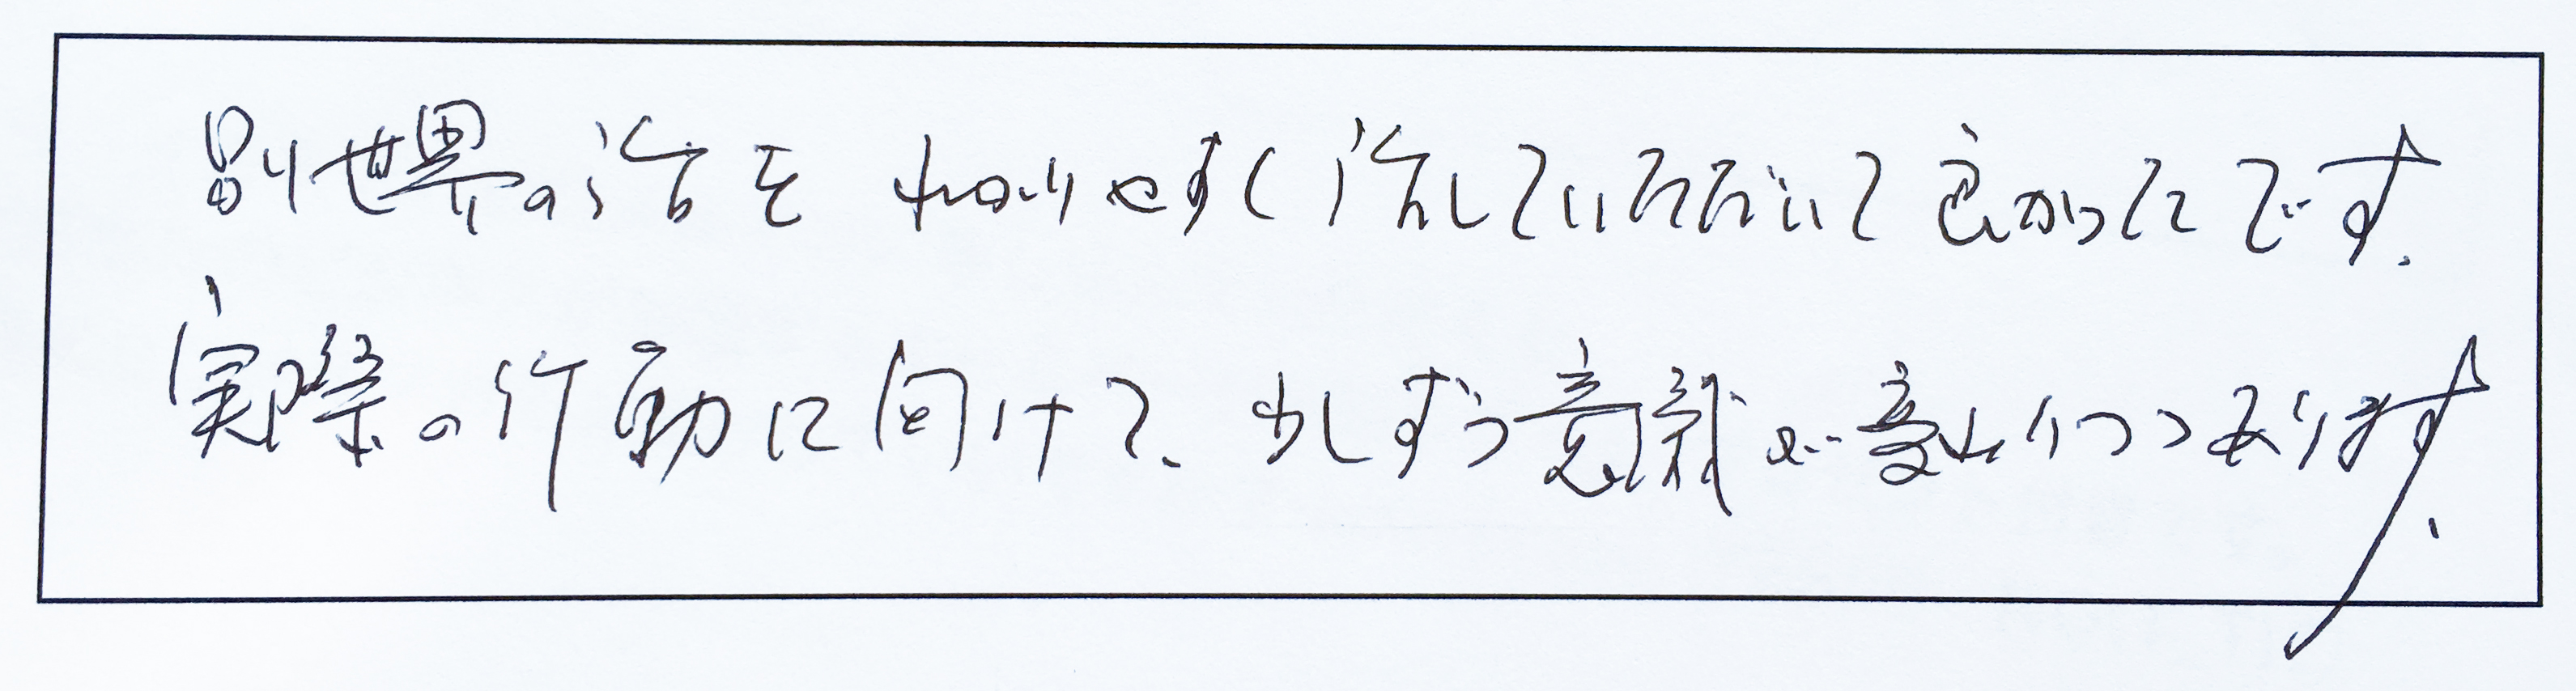 別世界の話を わかりやすく話していただいて良かったです.
実際の行動に向けて、少しずつ意識が変わりつつあります.